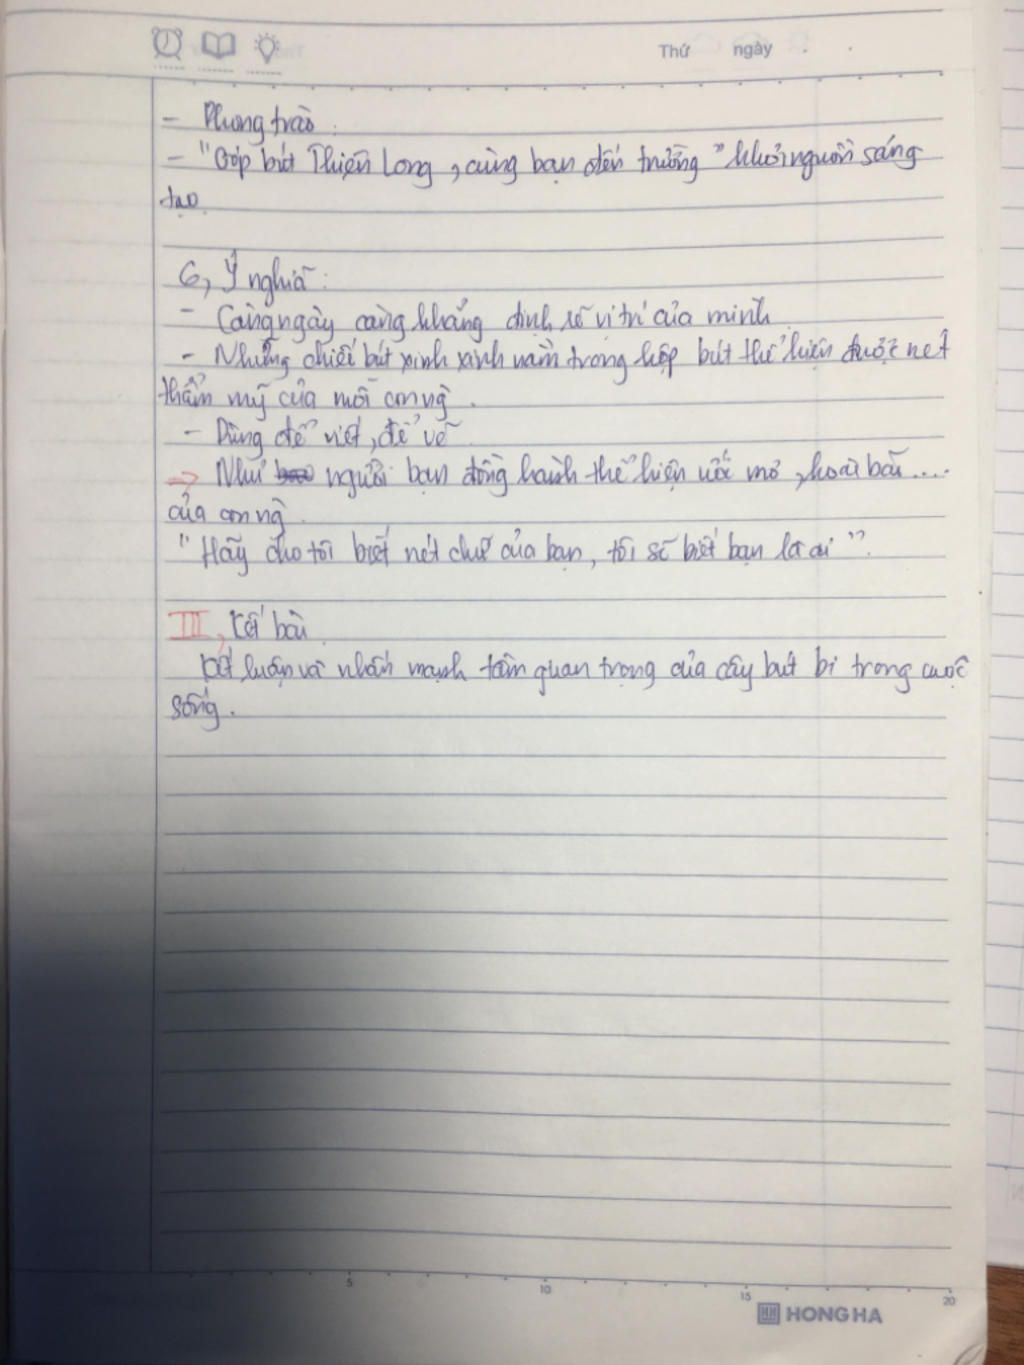 Thứ ngày
- Phong trào :
- "Góp bút Thiên Long, cùng bạn đến trường" khơi nguồn sáng
tạo.
6, Ý nghĩa:
- Càng ngày càng khẳng định rõ vị trí của mình
- Những chiếc bút xinh xinh nằm trong hộp bút thể hiện được nét
thẩm mỹ của mỗi con ng .
- Dùng để viết, để vẽ
-> Như người bạn đồng hành thể hiện ước mơ, hoài bão ....
của con ng .
"Hãy cho tôi biết nét chữ của bạn, tôi sẽ biết bạn là ai".
III, Kết bài
Kết luận và nhấn mạnh tầm quan trọng của cây bút bi trong cuộc
sống .
5 10 15 20
HH HONG HA